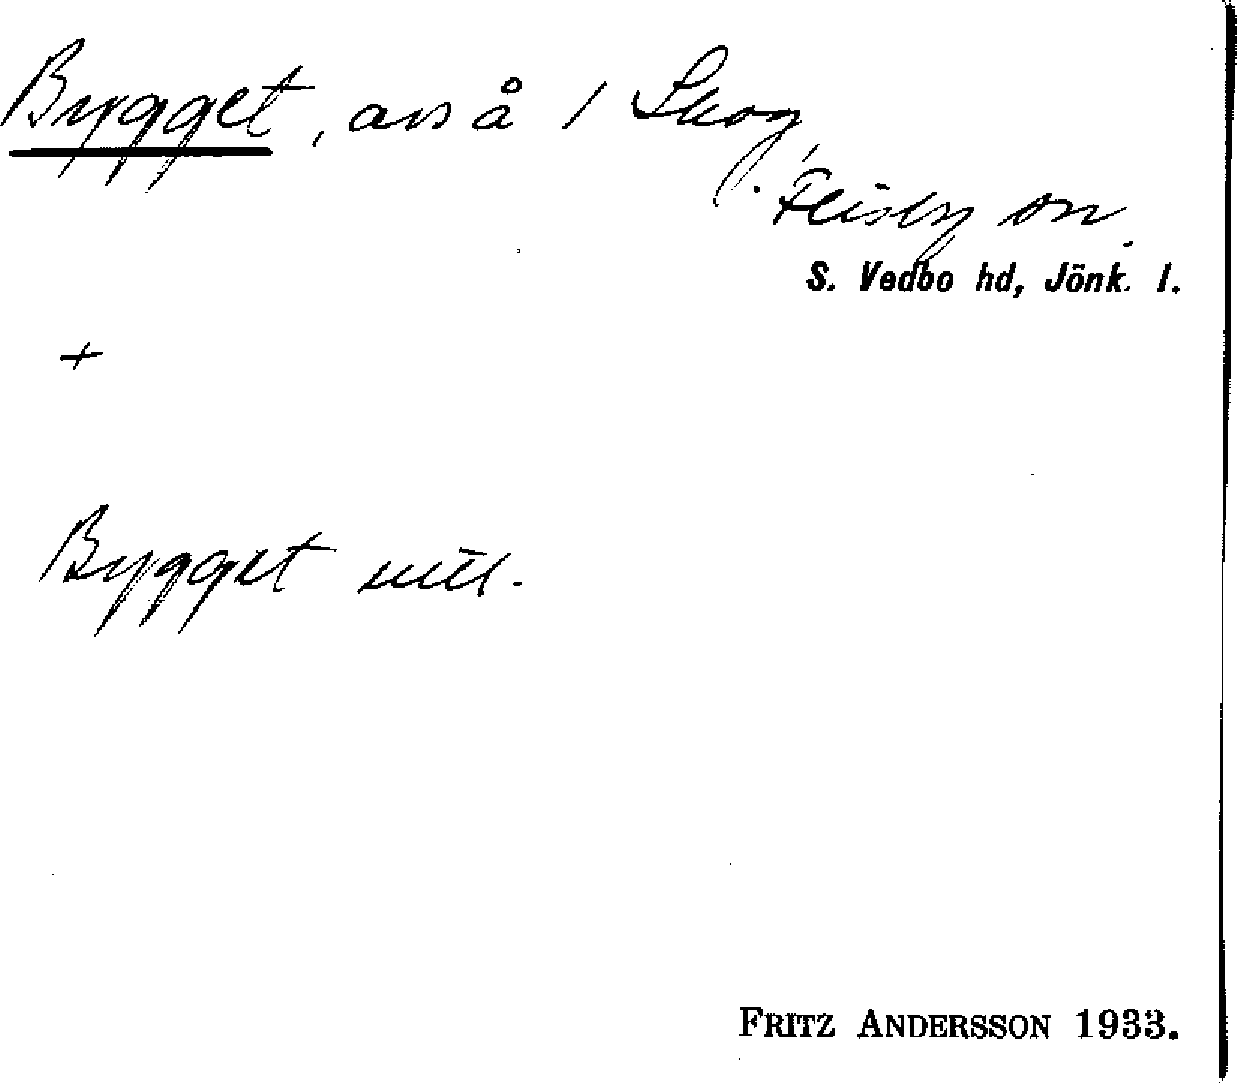 Bygget, avs å 1 Skog,
Flisby sn.
S. Vedbo hd, Jönk. l.
+
Bygget
FRITZ ANDERSSON 1933.